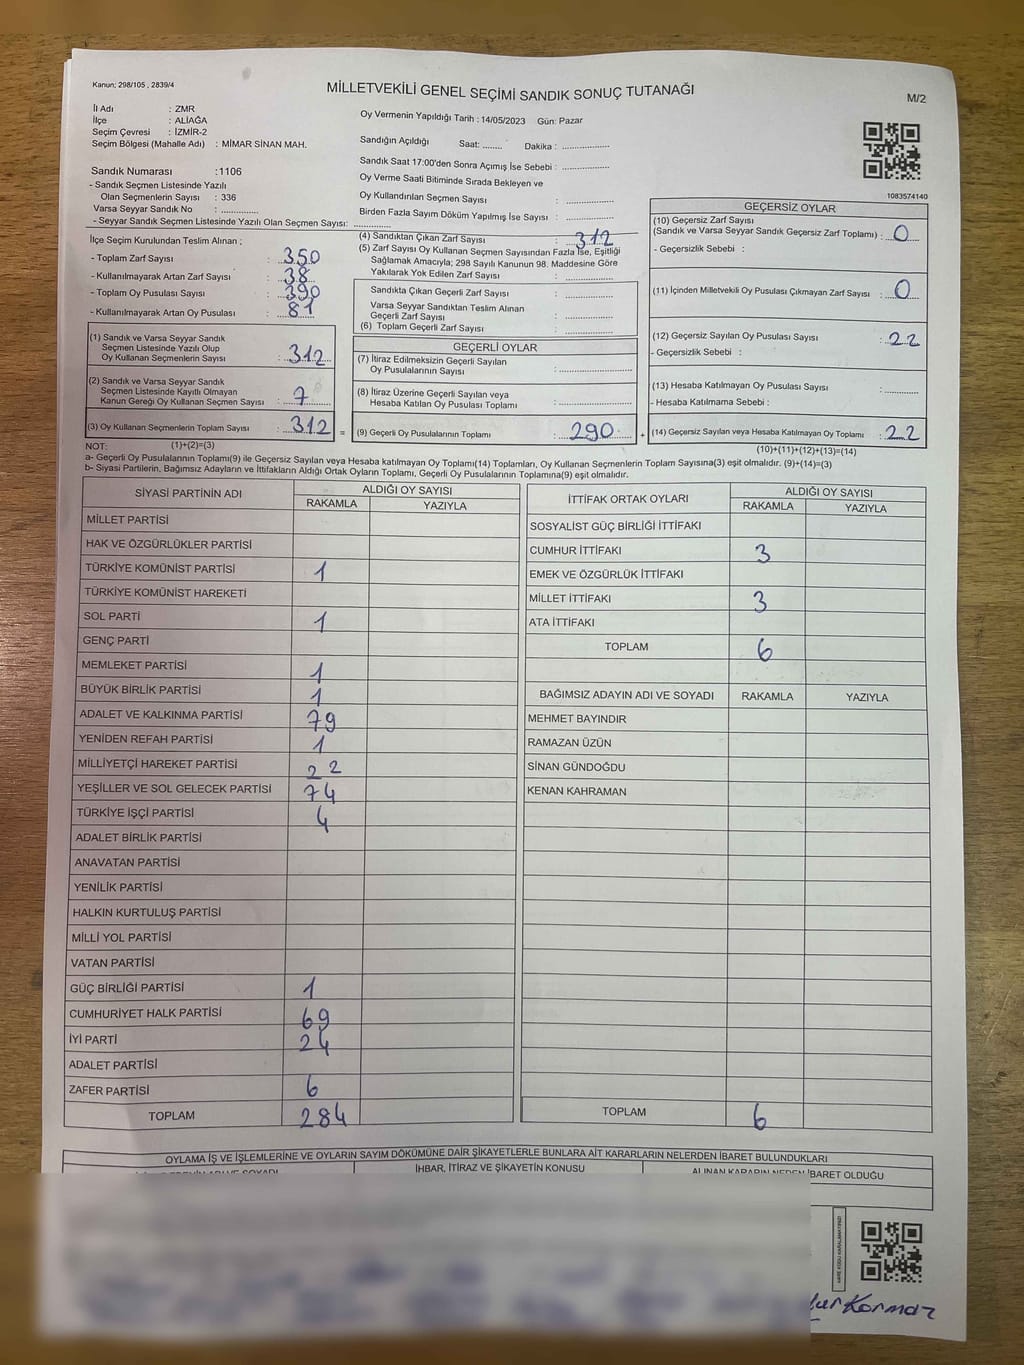 Kanun; 298/105 , 2839/4
MİLLETVEKİLİ GENEL SEÇİMİ SANDIK SONUÇ TUTANAĞI
M/2
İl Adı : ZMR
İlçe : ALİAĞA
Seçim Çevresi : İZMİR-2
Seçim Bölgesi (Mahalle Adı) : MİMAR SİNAN MAH.
Sandık Numarası :1106
- Sandık Seçmen Listesinde Yazılı
Olan Seçmenlerin Sayısı : 336
Varsa Seyyar Sandık No : ............
- Seyyar Sandık Seçmen Listesinde Yazılı Olan Seçmen Sayısı: ............
Oy Vermenin Yapıldığı Tarih : 14/05/2023 Gün: Pazar
Sandığın Açıldığı Saat: ........ Dakika : ................
Sandık Saat 17:00'den Sonra Açımış İse Sebebi : ................
Oy Verme Saati Bitiminde Sırada Bekleyen ve
Oy Kullandırılan Seçmen Sayısı : ................
Birden Fazla Sayım Döküm Yapılmış İse Sayısı : ................
1083574140
İlçe Seçim Kurulundan Teslim Alınan ;
- Toplam Zarf Sayısı : 350
- Kullanılmayarak Artan Zarf Sayısı : 38
- Toplam Oy Pusulası Sayısı : 390
- Kullanılmayarak Artan Oy Pusulası : 81
(1) Sandık ve Varsa Seyyar Sandık
Seçmen Listesinde Yazılı Olup
Oy Kullanan Seçmenlerin Sayısı : 312
(2) Sandık ve Varsa Seyyar Sandık
Seçmen Listesinde Kayıtlı Olmayan
Kanun Gereği Oy Kullanan Seçmen Sayısı : 7
(3) Oy Kullanan Seçmenlerin Toplam Sayısı : 312 =
(4) Sandıktan Çıkan Zarf Sayısı : 312
(5) Zarf Sayısı Oy Kullanan Seçmen Sayısından Fazla İse, Eşitliği
Sağlamak Amacıyla; 298 Sayılı Kanunun 98. Maddesine Göre
Yakılarak Yok Edilen Zarf Sayısı : ................
Sandıkta Çıkan Geçerli Zarf Sayısı : ................
Varsa Seyyar Sandıktan Teslim Alınan
Geçerli Zarf Sayısı : ................
(6) Toplam Geçerli Zarf Sayısı : ................
GEÇERLİ OYLAR
(7) İtiraz Edilmeksizin Geçerli Sayılan
Oy Pusulalarının Sayısı : ................
(8) İtiraz Üzerine Geçerli Sayılan veya
Hesaba Katılan Oy Pusulası Toplamı : ................
(9) Geçerli Oy Pusulalarının Toplamı : 290 +
GEÇERSİZ OYLAR
(10) Geçersiz Zarf Sayısı
(Sandık ve Varsa Seyyar Sandık Geçersiz Zarf Toplamı) : 0
- Geçersizlik Sebebi :
(11) İçinden Milletvekili Oy Pusulası Çıkmayan Zarf Sayısı : 0
(12) Geçersiz Sayılan Oy Pusulası Sayısı : 22
- Geçersizlik Sebebi :
(13) Hesaba Katılmayan Oy Pusulası Sayısı : ............
- Hesaba Katılmama Sebebi :
(14) Geçersiz Sayılan veya Hesaba Katılmayan Oy Toplamı : 22
NOT: (1)+(2)=(3)
(10)+(11)+(12)+(13)=(14)
a- Geçerli Oy Pusulalarının Toplamı(9) ile Geçersiz Sayılan veya Hesaba katılmayan Oy Toplamı(14) Toplamları, Oy Kullanan Seçmenlerin Toplam Sayısına(3) eşit olmalıdır. (9)+(14)=(3)
b- Siyasi Partilerin, Bağımsız Adayların ve İttifakların Aldığı Ortak Oyların Toplamı, Geçerli Oy Pusulalarının Toplamına(9) eşit olmalıdır.
SİYASİ PARTİNİN ADI ALDIĞI OY SAYISI
RAKAMLA YAZIYLA
MİLLET PARTİSİ
HAK VE ÖZGÜRLÜKLER PARTİSİ
TÜRKİYE KOMÜNİST PARTİSİ 1
TÜRKİYE KOMÜNİST HAREKETİ
SOL PARTİ 1
GENÇ PARTİ
MEMLEKET PARTİSİ 1
BÜYÜK BİRLİK PARTİSİ 1
ADALET VE KALKINMA PARTİSİ 79
YENİDEN REFAH PARTİSİ 1
MİLLİYETÇİ HAREKET PARTİSİ 22
YEŞİLLER VE SOL GELECEK PARTİSİ 74
TÜRKİYE İŞÇİ PARTİSİ 4
ADALET BİRLİK PARTİSİ
ANAVATAN PARTİSİ
YENİLİK PARTİSİ
HALKIN KURTULUŞ PARTİSİ
MİLLİ YOL PARTİSİ
VATAN PARTİSİ
GÜÇ BİRLİĞİ PARTİSİ 1
CUMHURİYET HALK PARTİSİ 69
İYİ PARTİ 24
ADALET PARTİSİ
ZAFER PARTİSİ 6
TOPLAM 284
İTTİFAK ORTAK OYLARI ALDIĞI OY SAYISI
RAKAMLA YAZIYLA
SOSYALİST GÜÇ BİRLİĞİ İTTİFAKI
CUMHUR İTTİFAKI 3
EMEK VE ÖZGÜRLÜK İTTİFAKI
MİLLET İTTİFAKI 3
ATA İTTİFAKI
TOPLAM 6
BAĞIMSIZ ADAYIN ADI VE SOYADI RAKAMLA YAZIYLA
MEHMET BAYINDIR
RAMAZAN ÜZÜN
SİNAN GÜNDOĞDU
KENAN KAHRAMAN
TOPLAM 6
OYLAMA İŞ VE İŞLEMLERİNE VE OYLARIN SAYIM DÖKÜMÜNE DAİR ŞİKAYETLERLE BUNLARA AİT KARARLARIN NELERDEN İBARET BULUNDUKLARI
İHBAR, İTİRAZ VE ŞİKAYETİN KONUSU ALINAN KARARIN NEDEN İBARET OLDUĞU
Kormaz